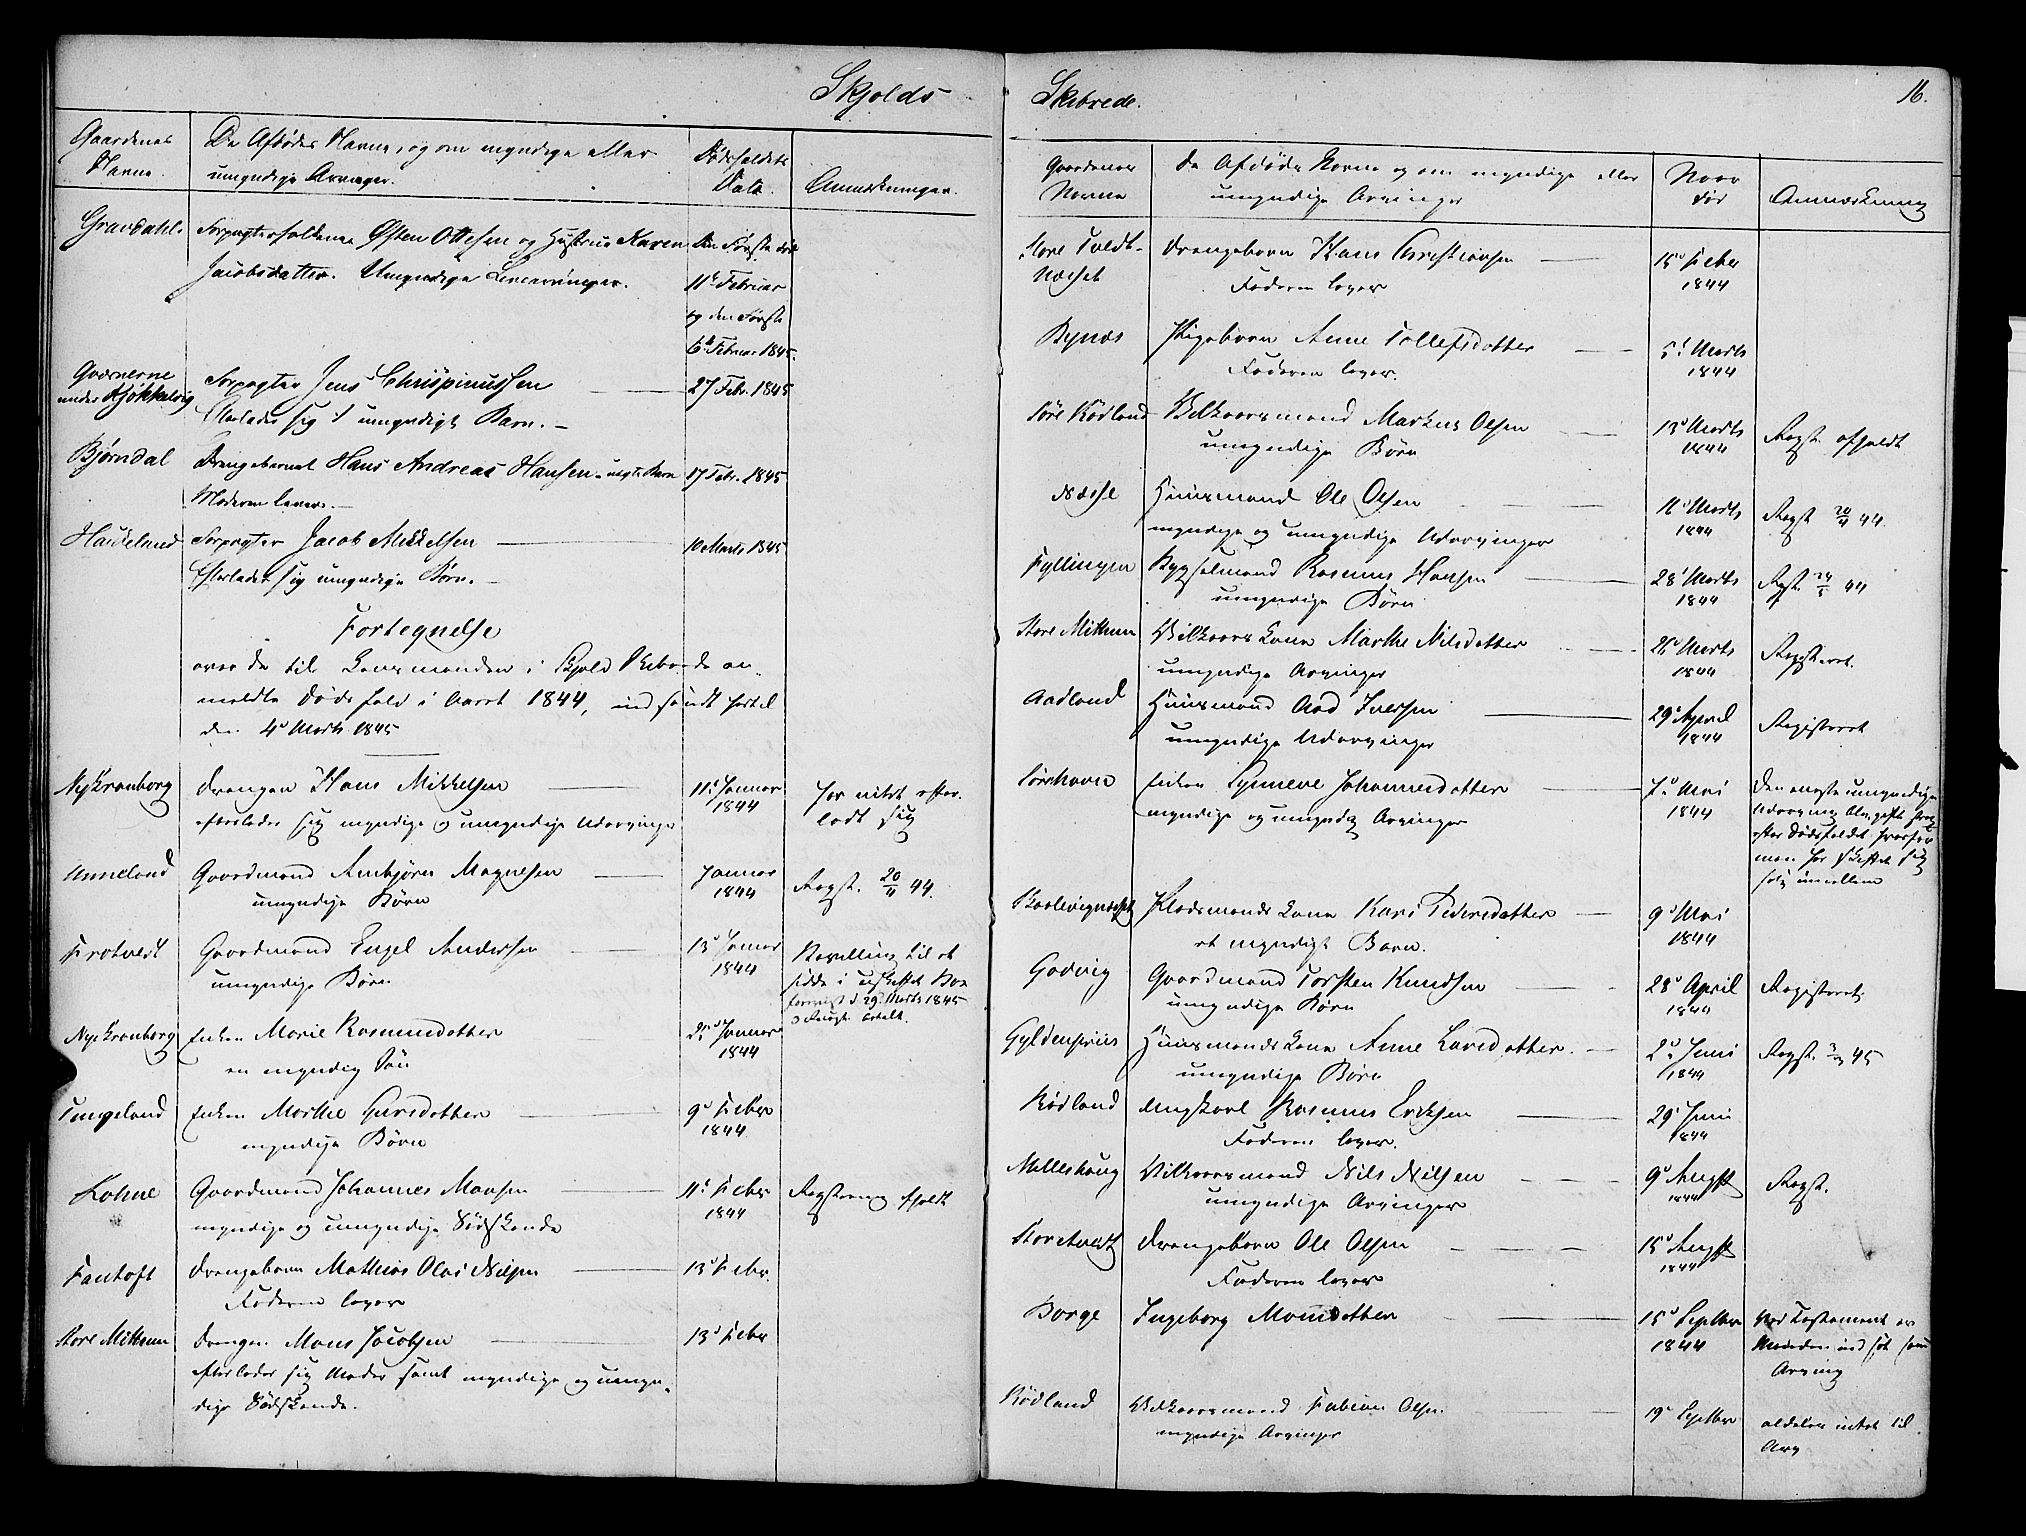 Skjolds
Gaardenes Navne.
De Afdødes Navne, og om myndige eller
umyndige Arvinger.
Dødsfaldets Dato.
Anmærkninger.
Gravdahl
Forpagterfolkene Østen Ottesen og Hustrue Karen
Jacobsdatter. Umyndige Livsarvinger.
11te Februar
og den Første
6te Februar 1845.
Gværnerne under Kjøkkelvig
Forpagter Jens Chrispinussen
Efterlader sig 1 umyndigt Barn.
27 Febr. 1845
Bjørndal
Drengebarnet Hans Andreas Hansen
Moderen lever.
17 Febr. 1845
Haukeland
Forpagter Jacob Mikkelsen
Efterlader sig umyndige Børn.
10 Marts 1845
Fortegnelse
over de til Lensmanden i Skjold Skibrede an-
meldte Dødsfald i Aaret 1844, indsendt
den 4de Marts 1845
Ny Kronborg
Drengen Hans Mikkelsen
efterlader sig myndige og umyndige Udarvinger
11te Januar 1844
har intet efter-
ladt sig
Unneland
Gaardmand Anbjørn Magnesen
umyndige Børn
Januar 1844
Regst. 20/4 44.
Frotvedt
Gaardmand Engel Andersen
umyndige Børn
13de Januar 1844
Bevilling til at
sidde i uskiftet Boe
29 Marts 1845
Nye Kronborg
Enken Marie Rasmusdatter
en myndig Søn
25de Januar 1844
Tungeland
Enken Marthe Larsdatter
myndige Børn
9de Febr 1844
Hohne
Gaardmand Johannes Monsen
myndige og umyndige Sødskende
11te Febr 1844
Registrering afholdt
Fantoft
Drengebarn Mathias Olai Nilsen
Faderen lever
13de Febr.
Store Milthun
Drengen Mons Jacobsen
efterlader sig Moder samt myndige og umyn-
dige Sødskende.
13de Febr
Skibrede.
16.
Gaardenes Navne
De Afdødes Navne og om myndige eller
umyndige Arvinger
Naar død
Anmærkning
Store Toldt-
Næset
Drengebarn Hans Christiansen
Faderen lever
15de Febr 1844
Bynæs
Pigebarn Anne Tollefsdatter
Faderen lever.
5te Marts 1844
Søre Rødland
Vilkaarsmand Markus Olsen
umyndige Børn
13de Marts 1844
Regst. afholdt
Næsse
Huusmand Ole Olsen
myndige og umyndige Udarvinger
11te Marts 1844
Regst 20/4 44.
Fyllingen
Bygselmand Rasmus Hansen
umyndige Børn
28de Marts 1844
Regst. 24/5 44
Store Milthun
Vilkaars Kone Marthe Nilsdatter
umyndige Arvinger
26de Marts 1844
Registreret.
Aadland
Huusmand Aad Iversen
umyndige Udarvinger
29de April 1844
Registreret
Enken Synneve Johannesdatter
myndige og umyndig Arvinger
7de Mai 1844
Den eneste umyndige
Udarving
efter Dødsfaldet
man har skiftet sig
imellem
Pladsmands Kone Kari Pedersdatter
et myndigt Barn.
9de Mai 1844
Godvig
Gaardmand Torsten Knudsen
umyndige Børn
28de April 1844
Registreret
Gyldenpriis
Huusmands Kone Anne Larsdatter.
umyndige Børn
2de Juni 1844
Regst. 45
Rødland
Ungkarl Rasmus Ericksen
Faderen lever.
29de Juni 1844
Melleshaug
Vilkaarsmand Nils Nilsen
umyndige Arvinger
9de Augst 1844
Regst.
Storetvedt
Drengebarn Ole Olsen
Faderen lever
15de Augst 1844
Borge
Ingeborg Monsdatter
15de Septbr 1844
Ved Testament er
Manden indsat som
Arving
Rødland
Vilkaarsmand Fabian Olsen
myndige Arvinger
19de Septbr
aldeles intet til
Arv